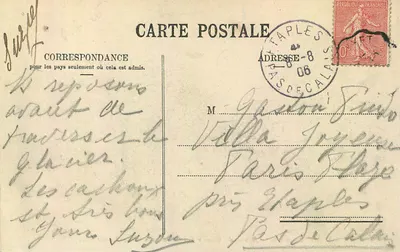 CARTE POSTALE
CORRESPONDANCE
pour les pays seulement où cela est admis.
ADRESSE
ETAPLES
8-8
06
PAS DE CALAIS
Suzon
reposons
avant de
traverser le
glacier.
Les cochons
st très bons
Yours Suzon
M Gaston
Villa Joyeuse
Paris Plage
près Etaples
Pas de Calais